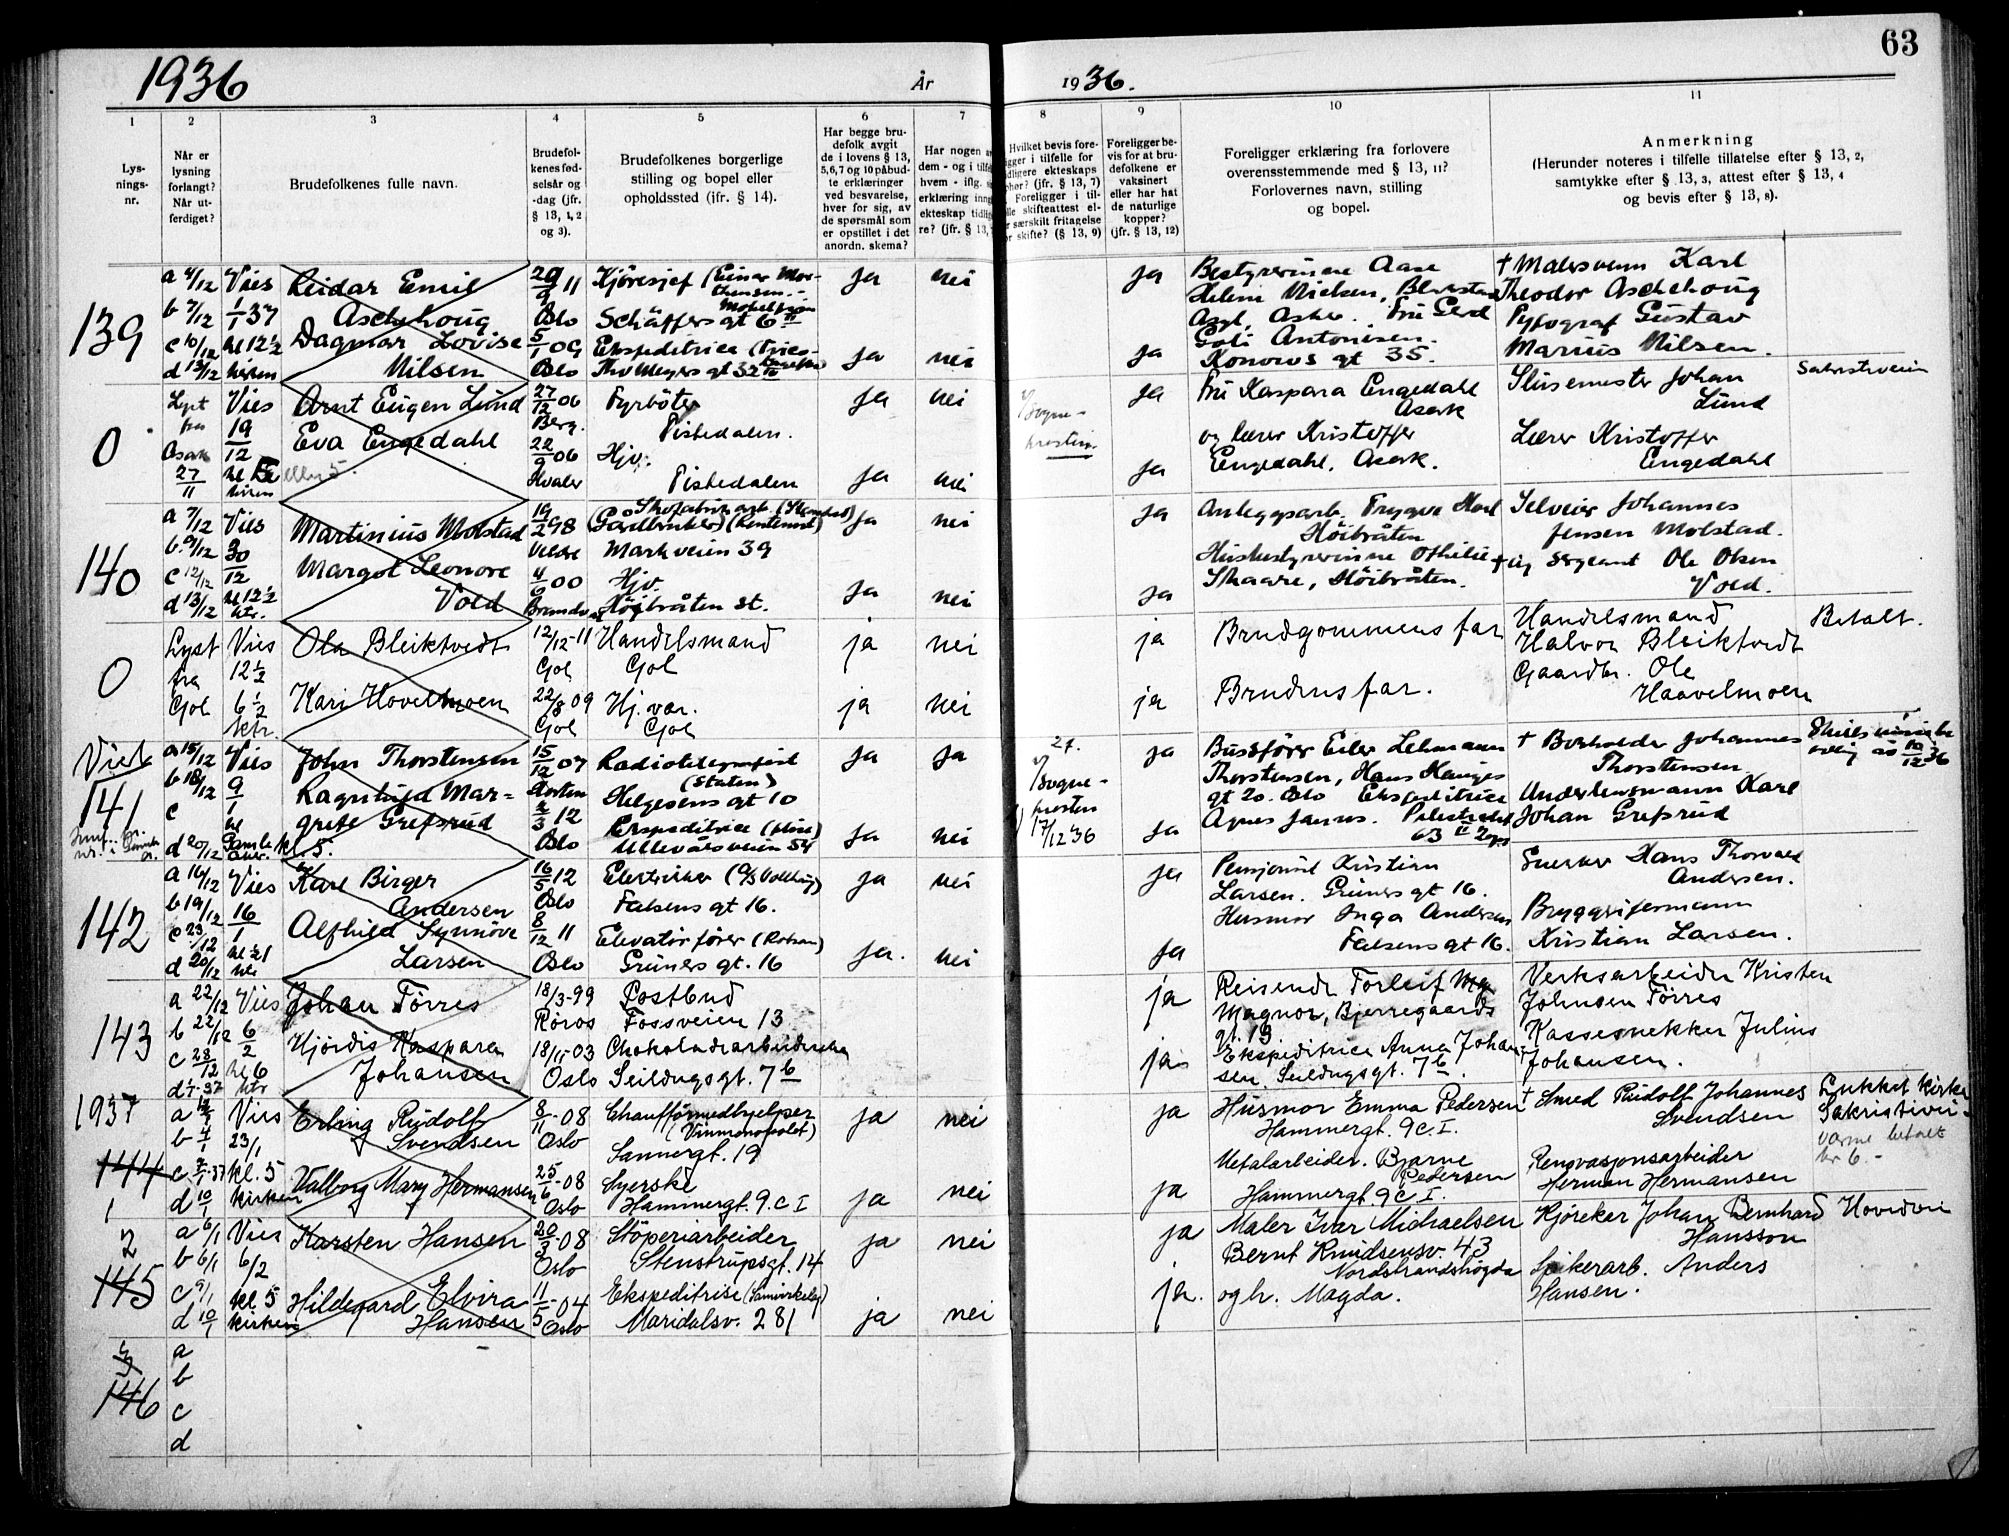 63
1936
År
1936.
1
2
3
4
5
6
7
8
9
10
11
Lys-
nings-
nr.
Når er
lysning
forlangt?
Når ut-
ferdiget?
Brudefolkenes fulle navn.
Brudefol-
kenes fød-
selsår og
-dag (jfr.
§ 13, 1, 2
og 3).
Brudefolkenes borgerlige
stilling og bopel eller
opholdssted (jfr. § 14).
Har begge bru-
defolk avgit
de i lovens § 13,
5,6,7 og 10 påbud-
te erklæringer
ved besvarelse,
hver for sig, av
de spørsmål som
er opstillet i det
anordn. skema?
Har nogen
dem - og i
hvem - iflg.
erklæring inn
ekteskap
re? (jfr. § 13,
Hvilket bevis fore-
ligger i tilfelle for
ekteskaps
(jfr. § 13, 7)
Foreligger i til-
skifteattest el-
særskilt fritagelse
skifte? (§ 13, 9)
Foreligger be-
vis for at bru-
defolkene er
vaksinert
eller har hat
de naturlige
kopper?
(jfr. § 13, 12)
Foreligger erklæring fra forlovere
overensstemmende med § 13, 11?
Forlovernes navn, stilling
og bopel.
Anmerkning
(Herunder noteres i tilfelle tillatelse efter § 13, 2,
samtykke efter § 13, 3, attest efter § 13, 4
og bevis efter § 13, 8).
139
a 4/12 Vies Reidar Emil 29/9 11 Kjøresjef (Einar Mor- ja nei ja Bestyrerinne Aase † Malersvenn Karl
b 7/12 1/1 37 Aschehoug Oslo Schäffers gt 6 Helene Nielsen, Theodor Aschehoug
c 10/12 kl 12½ Dagmar Lovise 5/1 09 Ekspeditrice Asyl, Asker. Fru Gerd Typograf Gustav
d 13/12 Nilsen Oslo Thv Meyers gt 32 ja nei ja Antonisen. Konows gt 35. Marius Nilsen.
0
Lyst Vies Arnt Eugen Lund 27/12 06 Fyrbøter ja nei Sogne- ja Fru Kaspara Engedahl Slusemester Johan
fra 19/12 Berg. Tistedalen. presten Asak Lund
Asak Eva Engedahl 22/9 06 Hjv. og lærer Kristoffer Lærer Kristoffer
27/11 Hvaler Tistedalen ja nei ja Engedahl, Asak. Engedahl
140
a 7/12 Vies Martinius Molstad 19/2 98 Skofabrikarb. ja nei ja Anleggsarb. Trygve Selveier Johannes
b 9/12 30/12 (Gårdbruker) Markveien 39 Høibråten Jensen Molstad.
c 12/12 Margot Leonore 4/6 00 Hjv. Husbestyrerinne Othilie † Sergeant Ole Olsen
d 13/12 kl 12½ Vold Høibråten st. ja nei ja Skaare, Høibråten. Vold.
0
Lyst Vies Ola Bleiktvedt 12/12-11 Handelsmand ja nei ja Brudgommens far Handelsmand Betalt.
fra 12½ Gol Gol Halvor Bleiktvedt
Gol 6½ Kari Hovelmoen 22/8 09 Hj. vær. ja nei ja Brudens far. Gaardbr. Ole
ktr. Gol Gol Haavelmoen
Viet
141
a 15/12 Vies John Thorstensen 15/12 07 Radiotelegrafist ja ja ja Bussfører Eiler Lehmann † Johannes
b 18/12 9/1 Horten (Staten) Sogne- Thorstensen, Hans Hauges Thorstensen
c kl Ragnhild Mar- 2/3 12 Helgesens gt 10 presten gt 20. Oslo Ekspeditrice Underlensmann Karl
d 20/12 Gamle Aker kl. 5. grete Grefsrud Oslo Ekspeditrice Ullevålsveien 54 ja nei 17/12 36 ja Agnes Pilestredet 63 Johan Grefsrud
142
a 16/12 Vies Karl Birger 16/5 12 Elektriker ja nei ja Pensjonist Kristian Snekker Hans Thorvald
b 19/12 16/1 Andersen Oslo Falsens gt 16. Larsen. Grüners gt 16. Andersen.
c 23/12 Alfhild Synnöve 8/12 11 Elevatörförer Husmor Inga Andersen Bryggeriformann
d 20/12 Larsen Oslo Grüners gt. 16 ja. nei ja Falsens gt 16. Kristian Larsen.
143
a 22/12 Vies Johan Törres 18/3-99 Postbud ja Reisende Torleif Verksarbeider Kristen
b 22/12 6/2 Røros Fossveien 13 Magnor, Bjerregaards Johnsen Törres
c 28/12 kl 6 Hjördis Kaspara 18/11-03 Chokoladearbeiderske ja gt. 13. Ekspeditrice Anna Johan- Kassesnekker Julius
d 4/1-37 ktr Johansen Oslo Seildugsgt. 7b sen. Seildugsgt. 7b. Johansen.
1937
144
1
a Vies Erling Rudolf 8/11-08 Chaufförmedhjelper ja nei ja Husmor Emma Pedersen † Smed Rudolf Johannes Lukket kirke
b 4/1 23/1 Svendsen Oslo (Vinmonopolet) Hammergt. 9 c. I. Svendsen Sakristivei-
Sannergt. 19 varme betalt
c 7/1-37 kl. 5 Valborg Mary Hermansen 25/6-08 Syerske Metalarbeider. Bjarne Renovasjonsarbeider kr 6.-
d 10/1 kirken Oslo Hammergt. 9. c I ja nei ja Pedersen Hammergt 9 c I. Herman Hermansen
2
145
a 6/1 Vies Karsten Hansen 20/2-08 Stöperiarbeider ja nei ja Maler Ivar Michaelsen Kjörekar Johan Bernhard Hovedvei
b 6/1 6/2 Oslo Stenstrupsgt. 14 Bernt Knudsensv. 43 Hansson
Nordstrandshögda
c 9/1 kl. 5 Hildegard Elvira 11/5-04 Ekspeditrise (Samvirkelag) ja. og h. Magda. Spikerarb. Anders
d 10/1 kirken Hansen Oslo Maridalsv. 281 ja nei Hansen.
3
146
a
b
c
d